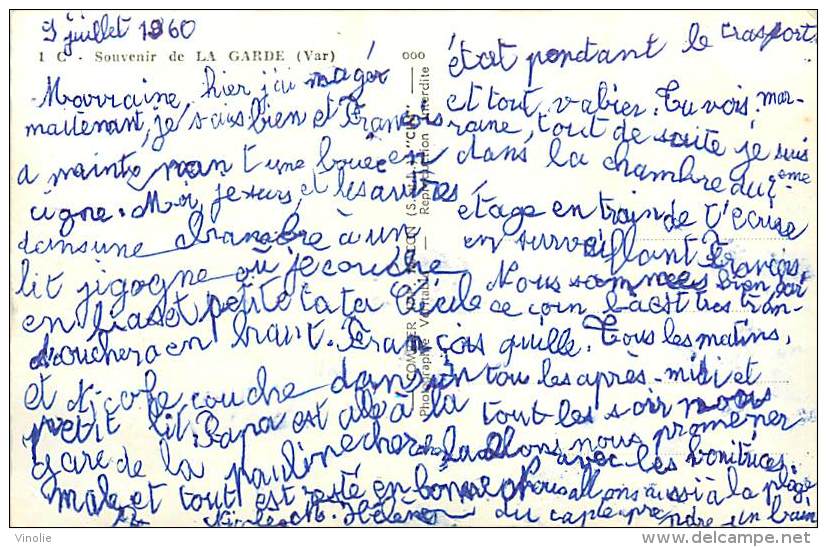 9 juillet 1960
1 C - Souvenir de LA GARDE (Var)
Marraine, hier j'ai nagér
maitenant, je suis bien et François
a maintenant une bouée en
cigne. Moi, je suis, et les autres
dans une chambre à un
lit gigogne où je couche
en bas et petite tata Cécile
couchera en haut. François
et Nicole couche dans un
petit lit. Papa est allé à la
gare de la pauline chercher la
male et tout est resté en bonne
Nicole M. Hélène
ooo
Reproduction interdite
état pendant le trasport
et tout va bien. Tu vois, mar-
raine, tout de suite je suis
dans la chambre du 1 eme
étage en train de t'écrire
en surveillant François.
Nous sommes bien ici
ce coin là est très tran-
quille. Tous les matins,
tous les après-midi et
tout les soir nous
allons nous promener
avec les
Nous allons aussi à la plage
du prendre un bain
Vinolie
www.delcampe.net